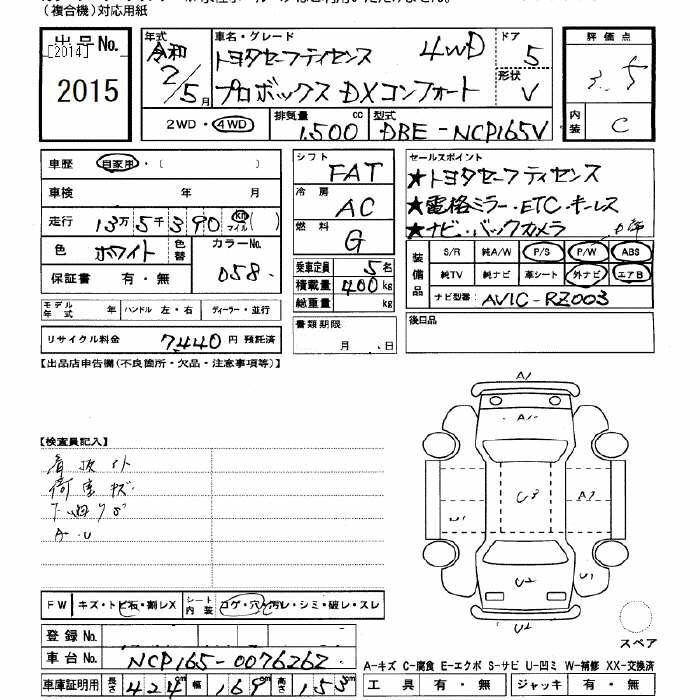 （複合機）対応用紙
出品No.
[2014]
2015
年式
令和
2/5月
車名・グレード
トヨタセーフティセンス 4WD
プロボックスDXコンフォート
ドア
5
形状
V
評価点
3.5
内装
C
2WD・4WD
排気量 1500 cc
型式 DBE-NCP165V
車歴 自家用・( )
車検 年 月
走行 13万5千390 Km マイル ( )
色 ホワイト 色替
カラーNo.
058
保証書 有・無
モデル年式 年 ハンドル 左・右 ディーラー・並行
リサイクル料金 7,440 円 預託済
シフト
FAT
冷房
AC
燃料
G
乗車定員 5 名
積載量 400 kg
総重量 kg
書類期限
月 日
セールスポイント
★トヨタセーフティセンス
★電格ミラー・ETC・キーレス
★ナビ・バックカメラ
装備品
S/R 純A/W P/S P/W ABS
純TV 純ナビ 革シート 外ナビ エアB
ナビ型番 AVIC-RZ003
後日品
【出品店申告欄(不良箇所・欠品・注意事項等)】
【検査員記入】
荷室キズ
A・U
A1
A1
U3
A2
U1
U2
U1
U2
スペア
FW キズ・トビ石・割レX
シート内装 コゲ・穴・汚レ・シミ・破レ・スレ
登録No.
車台No. NCP165-0076262
車庫証明用 長さ 424cm 幅 169cm 高さ 153cm
A-キズ C-腐食 E-エクボ S-サビ U-凹ミ W-補修 XX-交換済
工具 有・無 ジャッキ 有・無